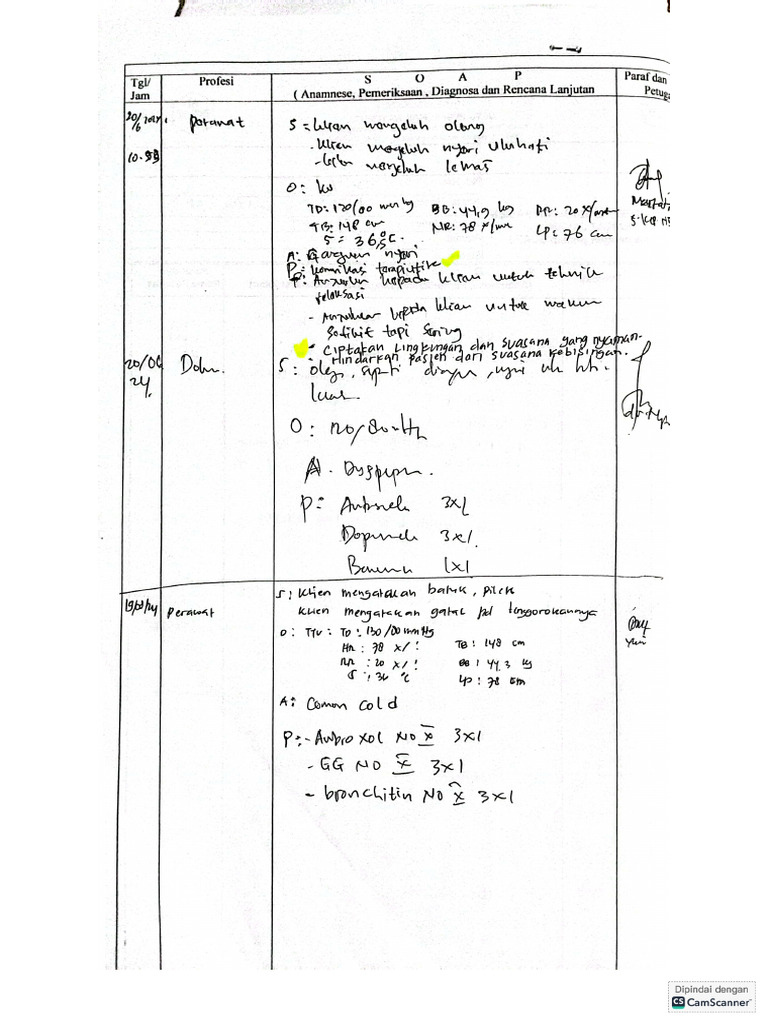 Tgl/ Jam
Profesi
S O A P
( Anamnese, Pemeriksaan , Diagnosa dan Rencana Lanjutan
Paraf dan
Petug
20/6
10.55
perawat
S = klien mengeluh oleng
- klien mengeluh nyeri uluhati
- klien mengeluh lemas
O : ku
TD: 120/00 mmHg BB: 44,9 kg RR: 20 x/mnt
TB: 148 cm NR: 78 x/mnt LP: 76 cm
S = 36,5°C.
A: Gangguan nyeri
P: komunikasi terapiutik
P: Anjurkan kepada klien untuk tehnik
relaksasi
- Anjurkan kepada klien untuk makan
Sedikit tapi Sering
- Ciptakan Lingkungan dan suasana yang nyaman.
- Hindarkan pasien dari suasana kebisingan.
20/06
24.
S: oleg,
O:
A.
P: 3x1
3x1.
1x1
perawat
S: Klien mengatakan batuk, pilek
Klien mengatakan gatal pd tenggorokannya
O: TTV: TD: 130/00 mmHg TB: 148 cm
HR: 78 x/! BB: 44,3 kg
RR: 20 x/! LP: 78 cm
S: 36 °C
A: Comon cold
P: - Ambroxol NO X 3x1
- GG NO X 3x1
- bronchitin NO X 3x1
Dipindai dengan
CS CamScanner